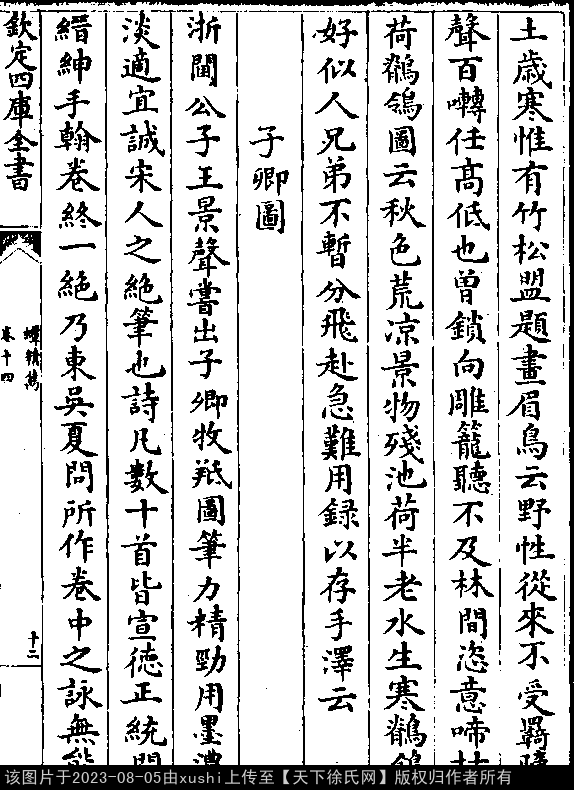 土歲寒惟有竹松盟題畫眉鳥云野性從來不受羈
聲百囀任髙低也曽鎖向雕籠聽不及林間恣意啼
荷鶺鴒圖云秋色荒凉景物殘池荷半老水生寒鶺鴒
好似人兄弟不暫分飛赴急難用録以存手澤云
子卿圖
浙閫公子王景聲甞出子卿牧羝圖筆力精勁用墨濃
淡適宜誠宋人之絶筆也詩凡數十首皆宣德正統間
縉紳手翰卷終一絶乃東吳夏問所作卷中之詠無能
欽定四庫全書
蟫精雋
卷十四
十二
该图片于2023-08-05由xushi上传至【天下徐氏网】版权归作者所有